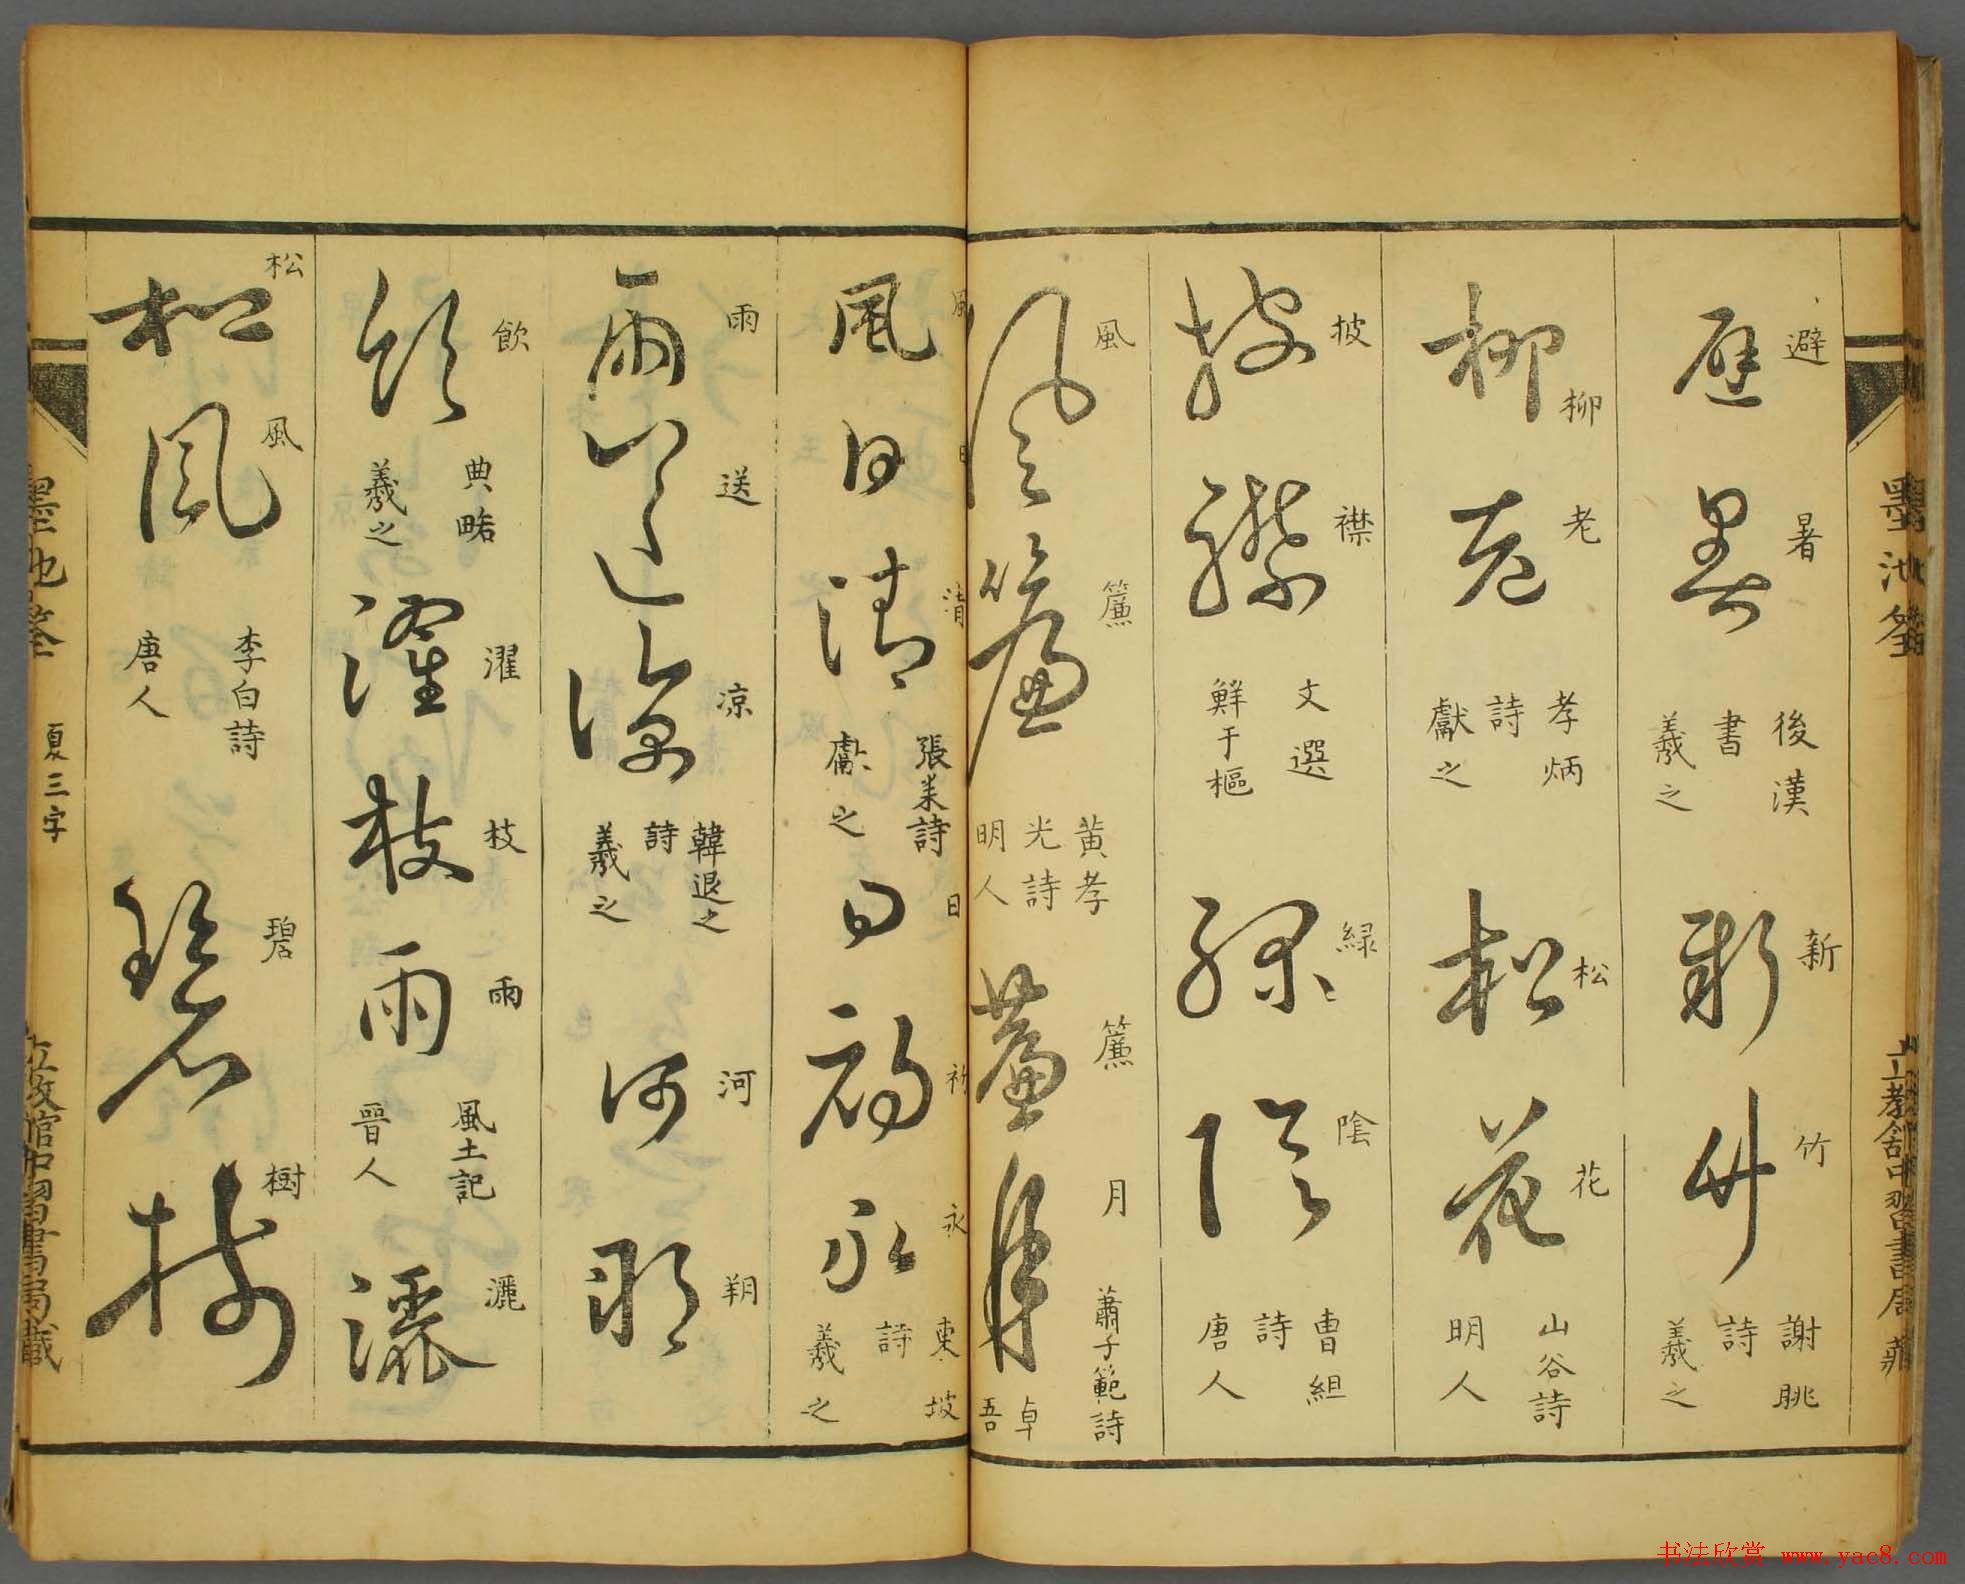 避暑 後漢書 羲之
新竹 謝朓詩 羲之
柳老 李炳詩 獻之
松花 山谷詩 明人
披襟 文選 鮮于樞
緑陰 曹組詩 唐人
風簾 黄孝光詩 明人
簾月 蕭子範詩 卓吾
風日清 張耒詩 獻之
日初永 東坡詩 羲之
雨送凉 韓退之詩 羲之
河朔
飲 典略 羲之
濯枝雨 風土記 晉人
灑
松風 李白詩 唐人
碧樹
墨池
夏三字
書法欣赏 www.yac8.com